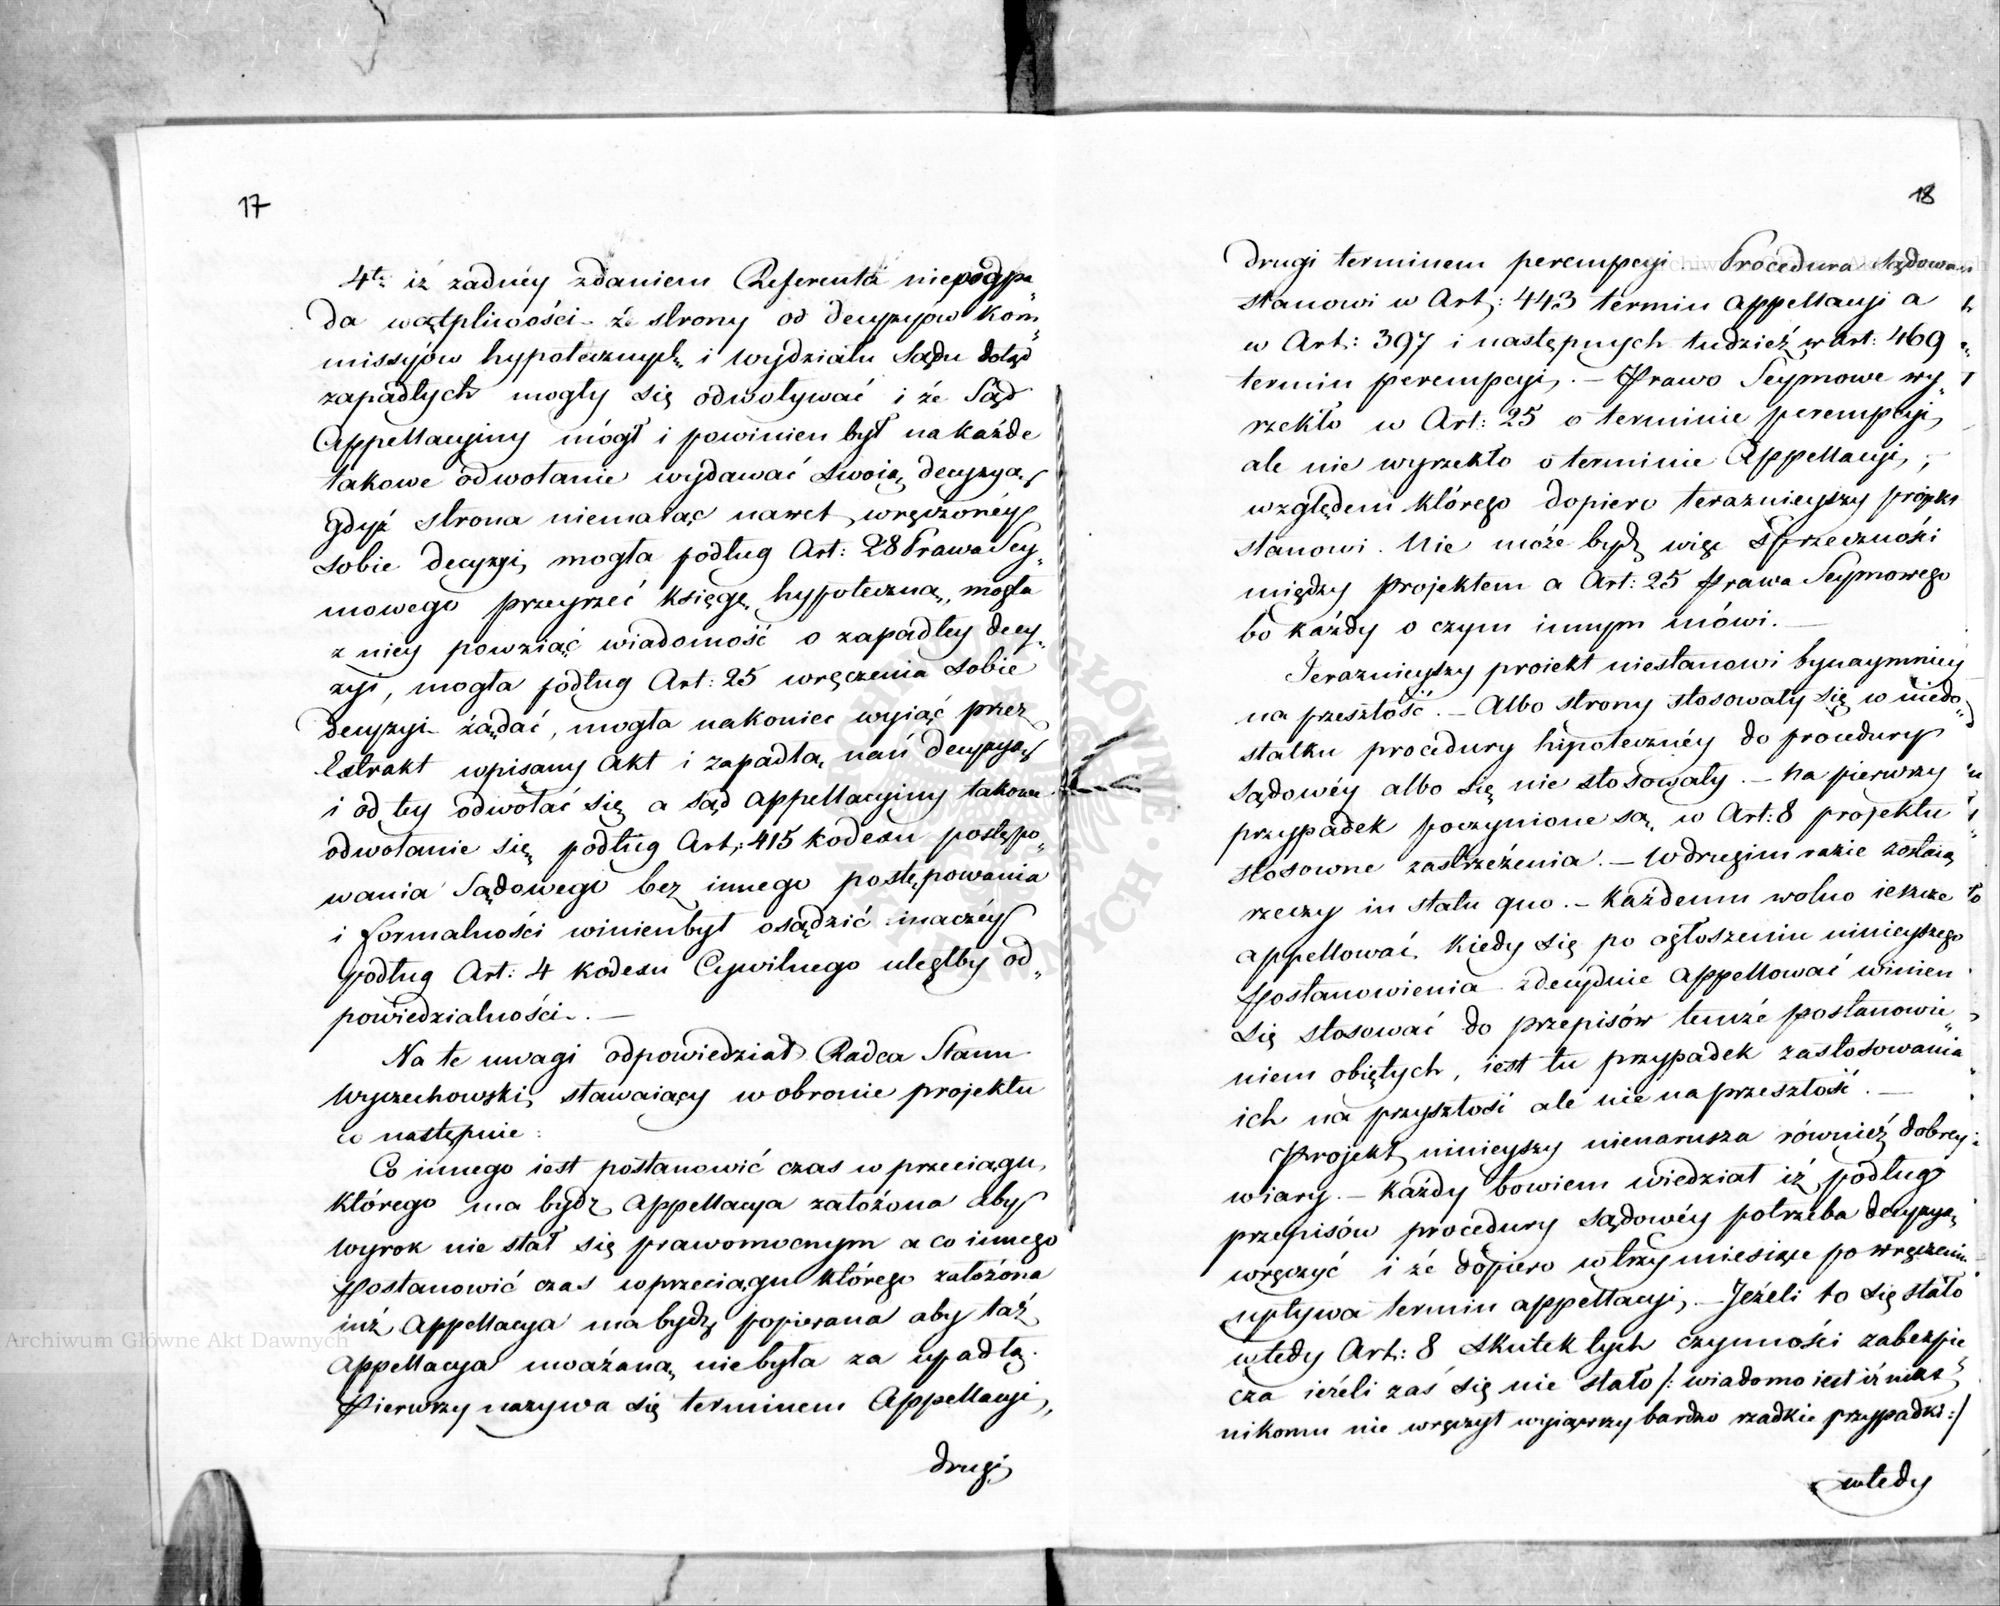 17
4te iż żadnéy zdaniem Referenta niepodpa„
da wątpliwości że strony od decyzyów Kom„
missyiów hypotecznych i wydziału Sądu dotąd
zapadłych mogły się odwoływać i że Sąd
Appellacyiny mógł i powinien był na każde
takowe odwołanie wydawać swoią decyzyą,
gdyż strona niemaiąc nawet wręczonéy
sobie decyzyi mogła podług Art: 28 Prawa Sey„
mowego przeyrzeć księgę hypoteczną, mogła
z niey powziąć wiadomość o zapadłey decy„
zyi, mogła podług Art: 25 wręczenia sobie
decyzyi żądać, mogła nakoniec wyiąć przez
Extrakt wpisany Akt i zapadłą nań decyzyą
i od tey odwołać się a sąd appellacyiny takowe
odwołanie się podług Art: 415 kodexu postępo„
wania Sądowego bez innego postępowania
i formalności winien był osądzić inaczéy
podług Art: 4 kodexu Cywilnego uległby od„
powiedzialności. —
Na te uwagi odpowiedział Radca Stanu
Wyczechowski, stawaiący w obronie projektu
co następnie:
Co innego iest postanowić czas w przeciągu
którego ma bydź appellacya założona aby
wyrok nie stał się prawomocnym a co innego
postanowić czas w przeciągu którego założona
iuż appellacya ma bydź popierana aby taż
appellacya uważaną niebyła za upadłą.
Pierwszy nazywa się terminem Appellacyi,
drugi
18
drugi terminem perempcyi Procedura Sądowa
stanowi w Art: 443 termin appellacyi a
w Art: 397 i następnych tudzież w art: 469
termin perempcyi. — Prawo Seymowe wy„
rzekło w Art: 25 o terminie perempcyi,
ale nie wyrzekło o terminie Appellacyi,
względem którego dopiero teraznieyszy projekt
stanowi. Nie może bydź więc sprzeczności
między projektem a Art: 25 Prawa Seymowego
bo każdy o czym innym mówi. —
Teraznieyszy proiekt niestanowi bynaymniéy
na przeszłość. — Albo strony stosowały się w niedo„
statku procedury hipotecznéy do procedury
sądowéy albo się nie stosowały. — Na pierwszy
przypadek poczynione są w Art: 8 projektu
stosowne zastrzeżenia. — W drugim razie zostaią
rzeczy in statu quo. — Każdemu wolno ieszcze
appellować, kiedy się po ogłoszeniu ninieyszego
Postanowienia zdecyduie appellować winien
się stosować do przepisów temże postanowie„
niem obiętych, iest tu przypadek zastosowania
ich na przyszłość ale nie na przeszłość. —
Projekt ninieyszy nienarusza również dobrey
wiary. — Każdy bowiem wiedział iż podług
przepisów procedury sądowéy potrzeba decyzyą
wręczyć i że dopiero w trzy miesiące po wręczeniu
upływa termin appellacyi. — Jeżeli to się stało
wtedy Art: 8 skutek tych czynności zabezpie„
cza ieżeli zaś się nie stało /: wiadomo iest iż nikt
nikomu nie wręczył wyiąwszy bardzo rzadkie przypadki :/
wtedy
Archiwum Główne Akt Dawnych